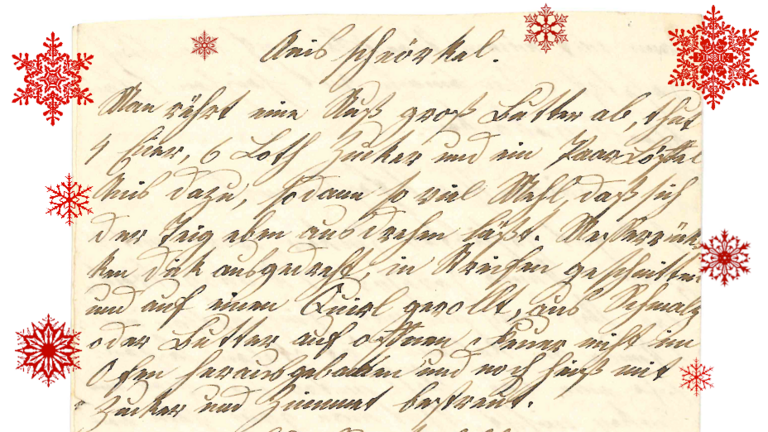 Anis schnörkel.
Man rührt eine Nuß groß Butter ab, thut
4 Eier, 6 Loth Zucker und ein Paar Löffel
Anis dazu, sodann so viel Mehl, daß sich
der Teig eben ausdrehen läßt. Messerrük-
ken dick ausgedreht, in Streifen geschnitten
und auf einen Quirl gerollt, aus Schmalz
oder Butter auf offnem Feuer nicht im
Ofen herausgebacken und noch heiß mit
Zucker und Zimmet bestreut.